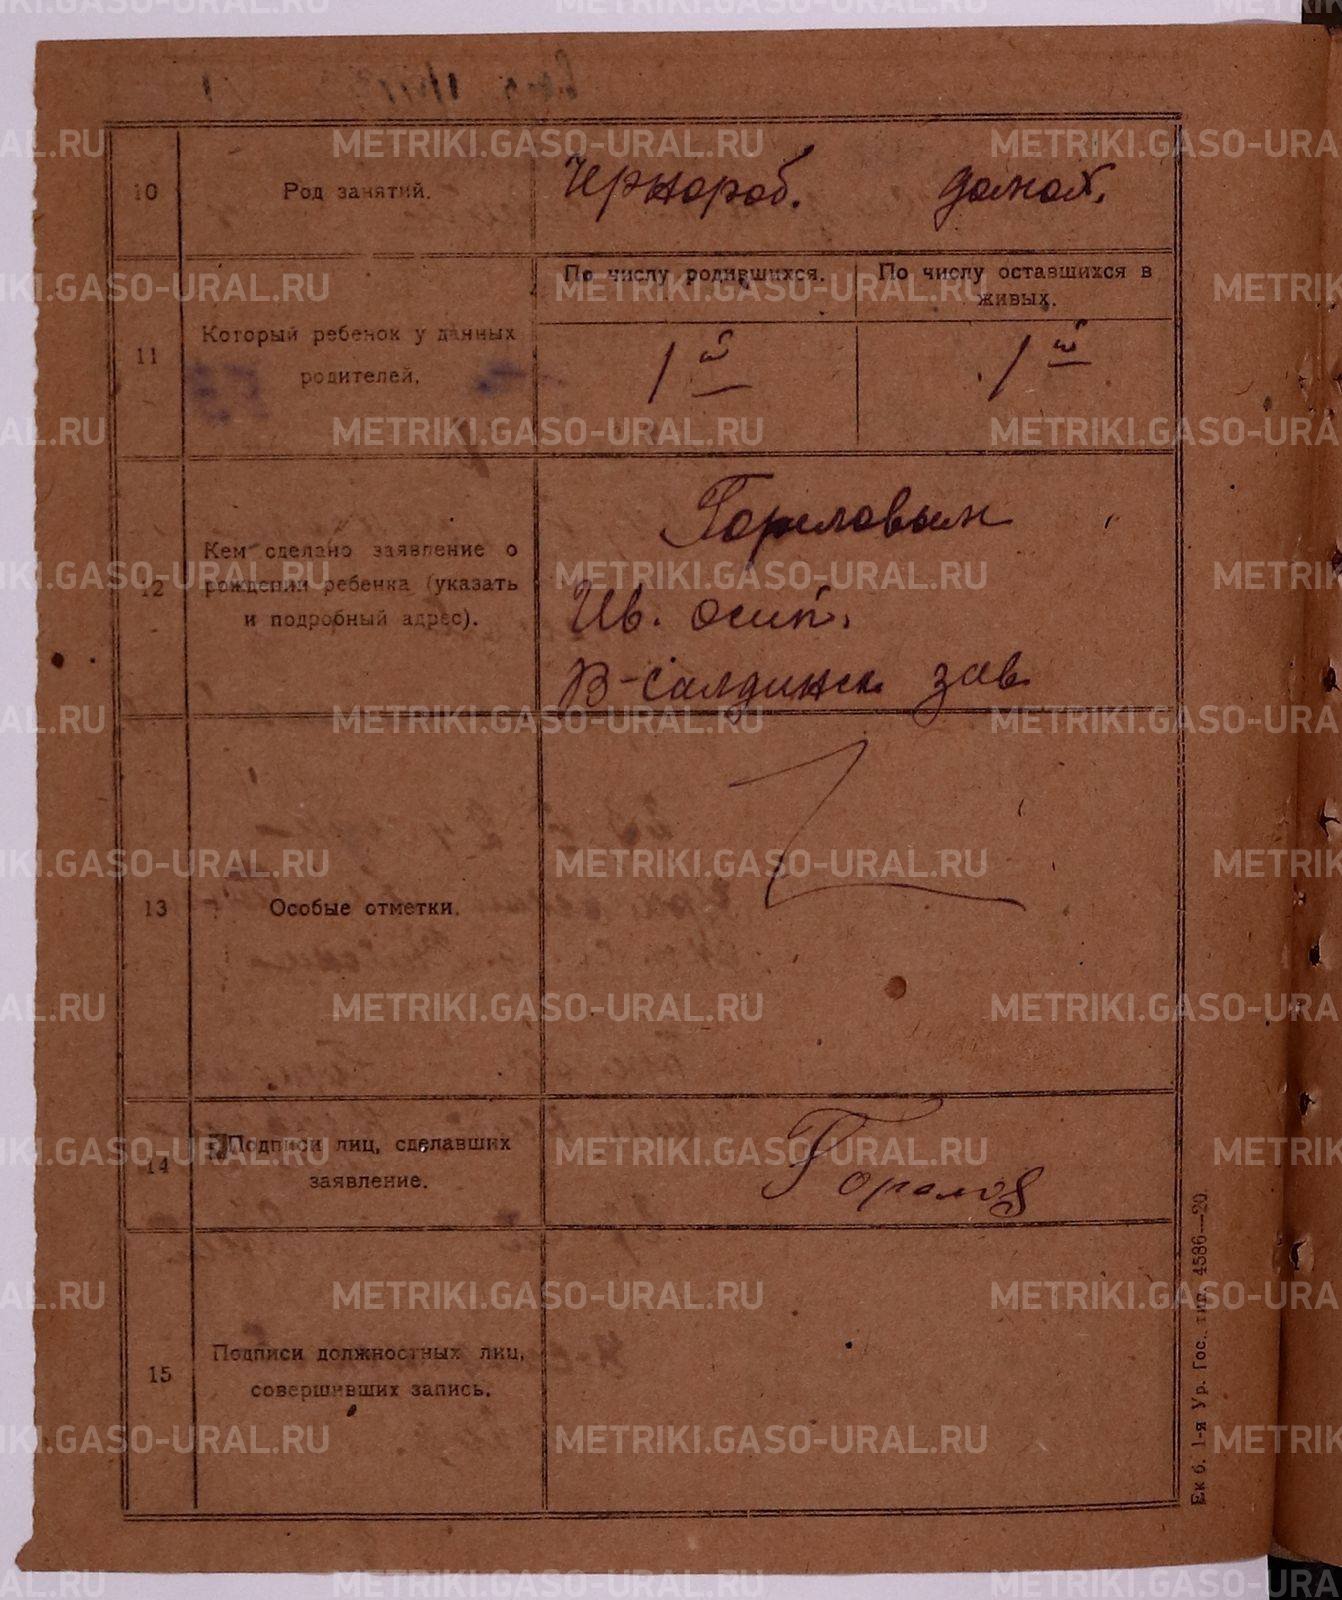 10
Род занятий.
Чернораб. домох.
11
Который ребенок у данных
родителей.
По числу родившихся.
По числу оставшихся в
живых.
1й
1й
12
Кем сделано заявление о
рождении ребенка (указать
и подробный адрес).
Гореловым
Ив. осип.
В-Салдинск. зав
13
Особые отметки.
14
Подписи лиц, сделавших
заявление.
Горелов
15
Подписи должностных лиц,
совершивших запись.
Ек б. 1-я Ур. Гос. тип. 4586—20.
METRIKI.GASO-URAL.RU